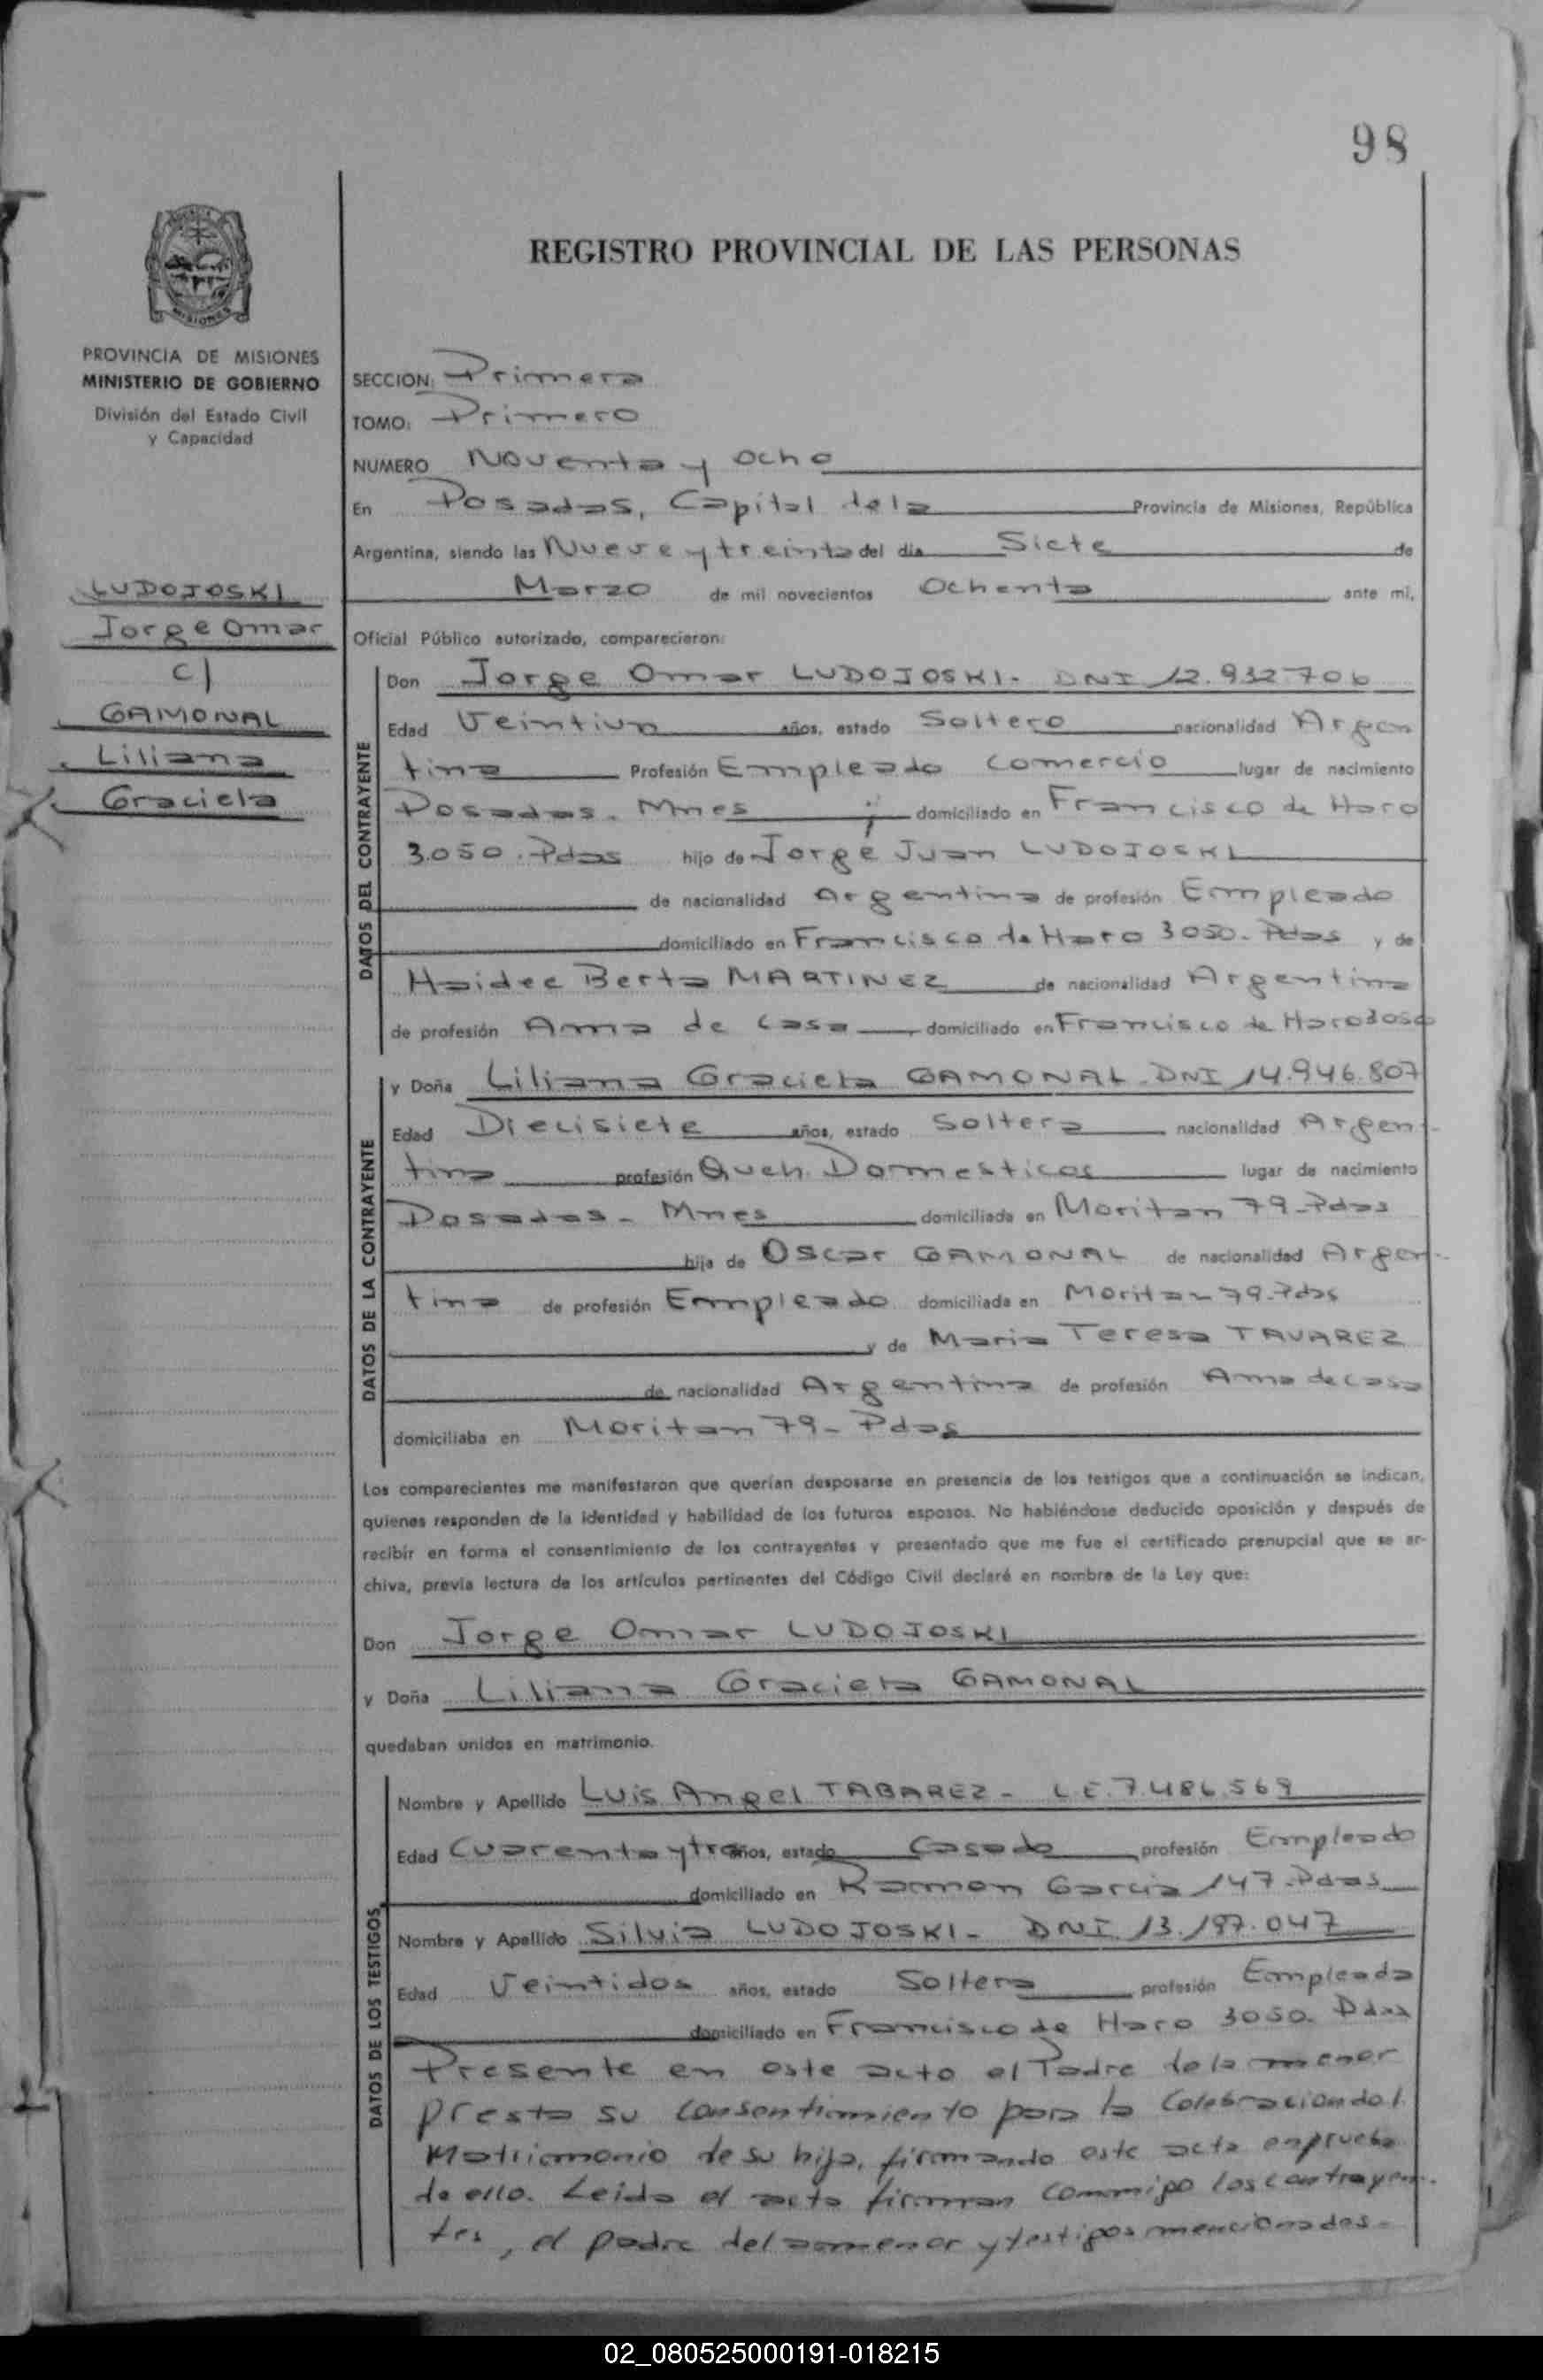 98
REGISTRO PROVINCIAL DE LAS PERSONAS
MISIONES
PROVINCIA DE MISIONES
MINISTERIO DE GOBIERNO
División del Estado Civil
y Capacidad
LUDOJOSKI
Jorge Omar
c/
GAMONAL
Liliana
Graciela
SECCION: Primera
TOMO: Primero
NUMERO Noventa y ocho
En Posadas, Capital de la Provincia de Misiones, República
Argentina, siendo las Nueve y treinta del día Siete de
Marzo de mil novecientos Ochenta ante mi,
Oficial Público autorizado, comparecieron:
DATOS DEL CONTRAYENTE
Don Jorge Omar LUDOJOSKI- DNI 12.932.706
Edad Veintiun años, estado Soltero nacionalidad Argen
tina Profesión Empleado Comercio lugar de nacimiento
Posadas. Mnes domiciliado en Francisco de Haro
3.050. Pdas hijo de Jorge Juan LUDOJOSKI
de nacionalidad Argentina de profesión Empleado
domiciliado en Francisco de Haro 3050- Pdas y de
Haidee Berta MARTINEZ de nacionalidad Argentina
de profesión Ama de casa domiciliado en Francisco de Haro 3050
DATOS DE LA CONTRAYENTE
y Doña Liliana Graciela GAMONAL. DNI 14.946.807
Edad Diecisiete años, estado Soltera nacionalidad Argen-
tina profesión Queh. Domesticos lugar de nacimiento
Posadas- Mnes domiciliada en Moritan 79-Pdas
hija de Oscar GAMONAL de nacionalidad Argen-
tina de profesión Empleado domiciliada en Moritan 79-Pdas
y de Maria Teresa TAVAREZ
de nacionalidad Argentina de profesión Ama de casa
domiciliaba en Moritan 79- Pdas
Los comparecientes me manifestaron que querían desposarse en presencia de los testigos que a continuación se indican,
quienes responden de la identidad y habilidad de los futuros esposos. No habiéndose deducido oposición y después de
recibir en forma el consentimiento de los contrayentes y presentado que me fue el certificado prenupcial que se ar-
chiva, previa lectura de los artículos pertinentes del Código Civil declaré en nombre de la Ley que:
Don Jorge Omar LUDOJOSKI
y Doña Liliana Graciela GAMONAL
quedaban unidos en matrimonio.
DATOS DE LOS TESTIGOS
Nombre y Apellido Luis Angel TABAREZ- L.E. 7.486.569
Edad Cuarenta y tres años, estado Casado profesión Empleado
domiciliado en Ramon Garcia 147-Pdas
Nombre y Apellido Silvia LUDOJOSKI- DNI 13.197.047
Edad Veintidos años, estado Soltera profesión Empleada
domiciliado en Francisco de Haro 3050. Pdas
Presente en este acto el Padre de la menor
presta su consentimiento para la Celebracion del
Matrimonio de su hija, firmando este acta en prueba
de ello. Leida el acta firman conmigo los contrayen-
tes, el padre de la menor y testigos mencionados-
02_080525000191-018215